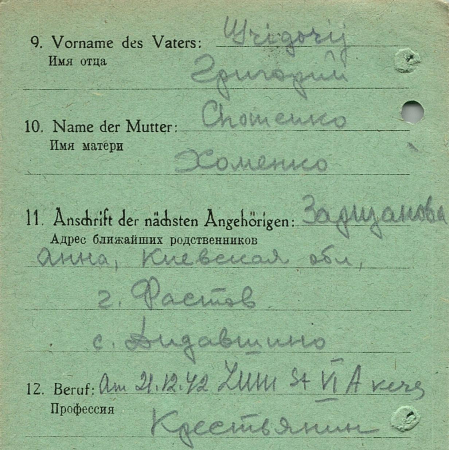 9. Vorname des Vaters: Grigorij
Имя отца
Григорий
10. Name der Mutter: Chomenko
Имя матери
Хоменко
11. Anschrift der nächsten Angehörigen:
Адрес ближайших родственников
Анна, Киевская обл,
г. Фастов
с.
12. Beruf: Am 21.12.42 St VI A
Профессия
Крестьянин